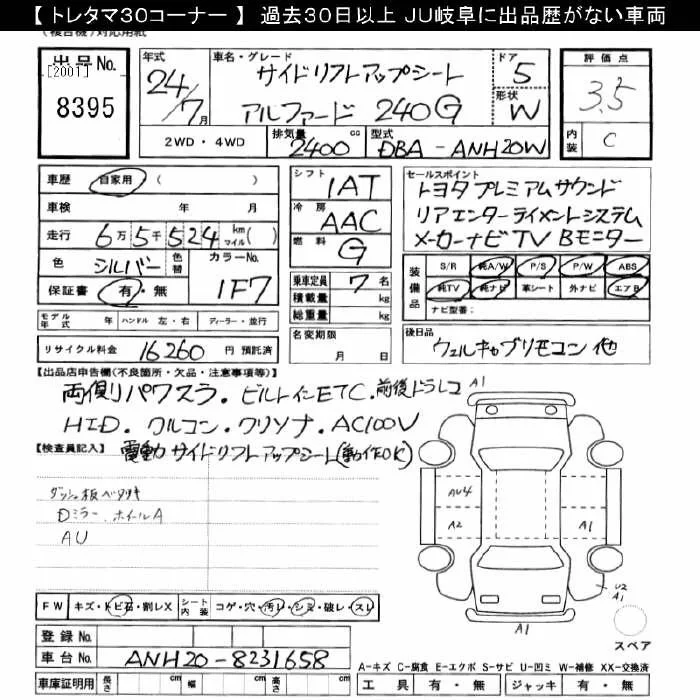 【 トレタマ30コーナー 】 過去30日以上 JU岐阜に出品歴がない車両
(複合機)対応用紙
出品No. 年式 車名・グレード ドア 評価点
[2001] サイドリフトアップシート 5
8395 24/7月 アルファード 240G 形状 W 3.5
2WD・4WD 排気量 2400 cc 型式 DBA-ANH20W 内装 C
車歴 自家用 ( ) シフト 1AT セールスポイント
車検 年 月 冷房 AAC トヨタプレミアムサウンド
走行 6万5千524 km マイル ( ) 燃料 G リアエンターテイメントシステム
メーカーナビTV Bモニター
色 シルバー 色替 カラーNo. 1F7 乗車定員 7 名 装備品 S/R 純A/W P/S P/W ABS
保証書 有・無 積載量 kg 純TV 純ナビ 革シート 外ナビ エアB
総重量 kg ナビ型番:
モデル年式 年 ハンドル 左・右 ディーラー・並行 名変期限 月 日 後日品
リサイクル料金 16260 円 預託済 ウェルキャブリモコン 他
【出品店申告欄(不良箇所・欠品・注意事項等)】
両側パワスラ・ビルトインETC・前後ドラレコ A1
HID・クルコン・クリソナ・AC100V
【検査員記入】 電動サイドリフトアップシート(動作OK)
ダッシュ板ベタツキ AU4
Dミラー ホイールA A2 A1
AU
U2
A1
FW キズ・トビ石・割レX シート内装 コゲ・穴・汚レ・シミ・破レ・スレ
A1
登録No. スペア
車台No. ANH20-8231658 A-キズ C-腐食 E-エクボ S-サビ U-凹ミ W-補修 XX-交換済
車庫証明用 長さ cm 幅 cm 高さ cm 工具 有・無 ジャッキ 有・無